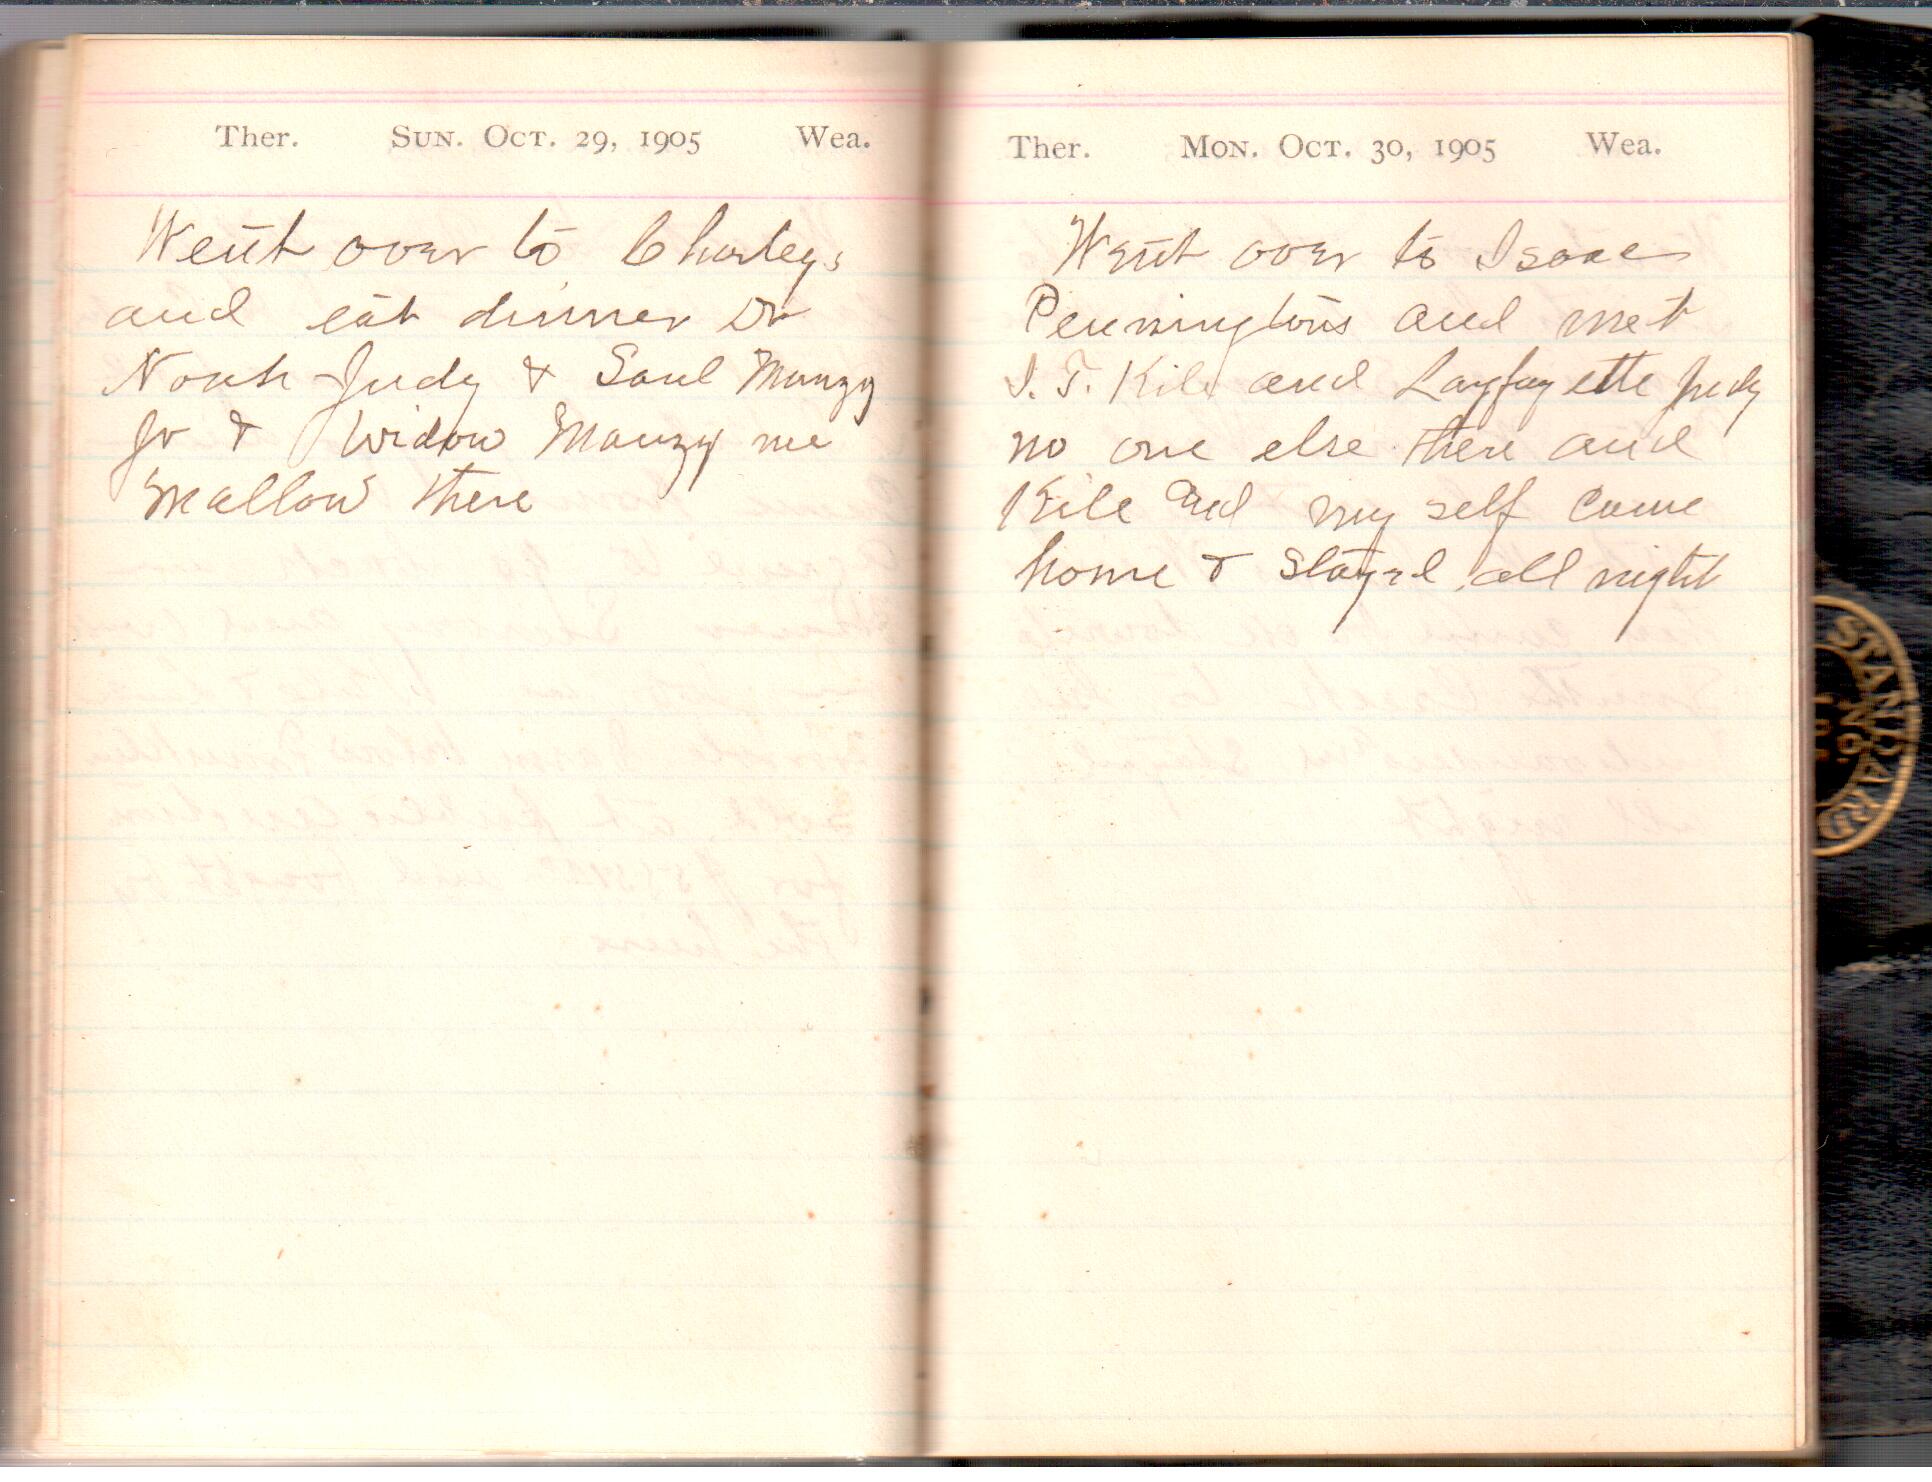 Ther. Sun. Oct. 29, 1905 Wea.
Went over to Charleys
and eat dinner Dr
Noah Judy & Saul Mauzy
Jr & Widow Mauzy nee
Mallow there
Ther. Mon. Oct. 30, 1905 Wea.
Went over to Isaac
Penningtons and met
I. T. Kile and Layfayette Judy
no one else there and
Kile and my self came
home & stayed all night
STANDARD
NO.